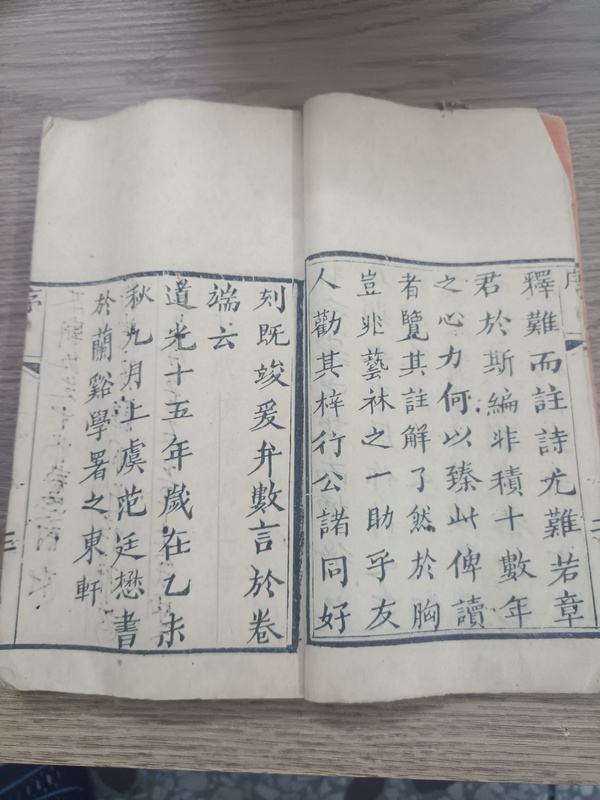 釋難而註詩尤難若章
君於斯編非積十數年
之心力何以臻此俾讀
者覽其註解了然於胸
豈非藝林之一助乎友
人勸其梓行公諸同好
刻既竣爰弁數言於卷
端云
道光十五年歲在乙未
秋九月上虞范廷懋書
於蘭谿學署之東軒
序